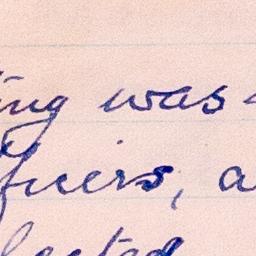 ing was
ficers, a
lected